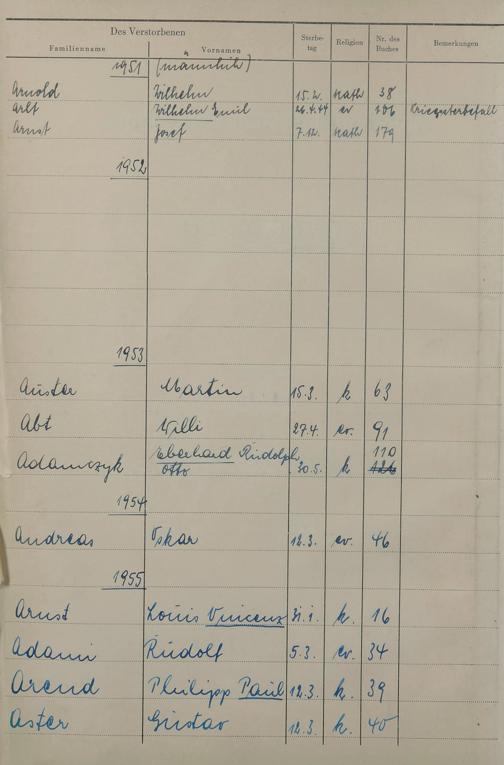 Des Verstorbenen
Familienname Vornamen Sterbe-tag Religion Nr. des Buches Bemerkungen
1951 (männlich)
Arnold Wilhelm 15.2. kath 38
Arlt Wilhelm Emil 26.4.44 ev 106 Kriegssterbefall
Arnst Josef 7.12. kath 179
1952
1953
Auster Martin 15.3. k 63
Abt Willi 27.4. ev. 91
Adamczyk Eberhard Rudolph Otto 30.5. k 110
1954
Andreas Oskar 12.3. ev. 46
1955
Arnst Louis Vincenz 31.1. k. 16
Adami Rudolf 5.3. ev. 34
Arend Philipp Paul 12.3. k. 39
Aster Gustav 12.3. k. 40